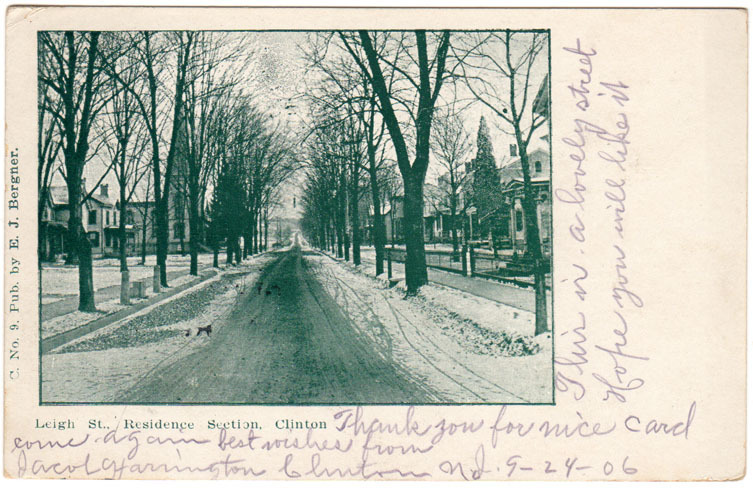 C. No. 9. Pub. by E. J. Bergner.
This is a lovely street
Hope you will like it
Leigh St., Residence Section, Clinton
Thank you for nice card
come again best wishes from
Jacob Harrington Clinton N.J. 9-24-06